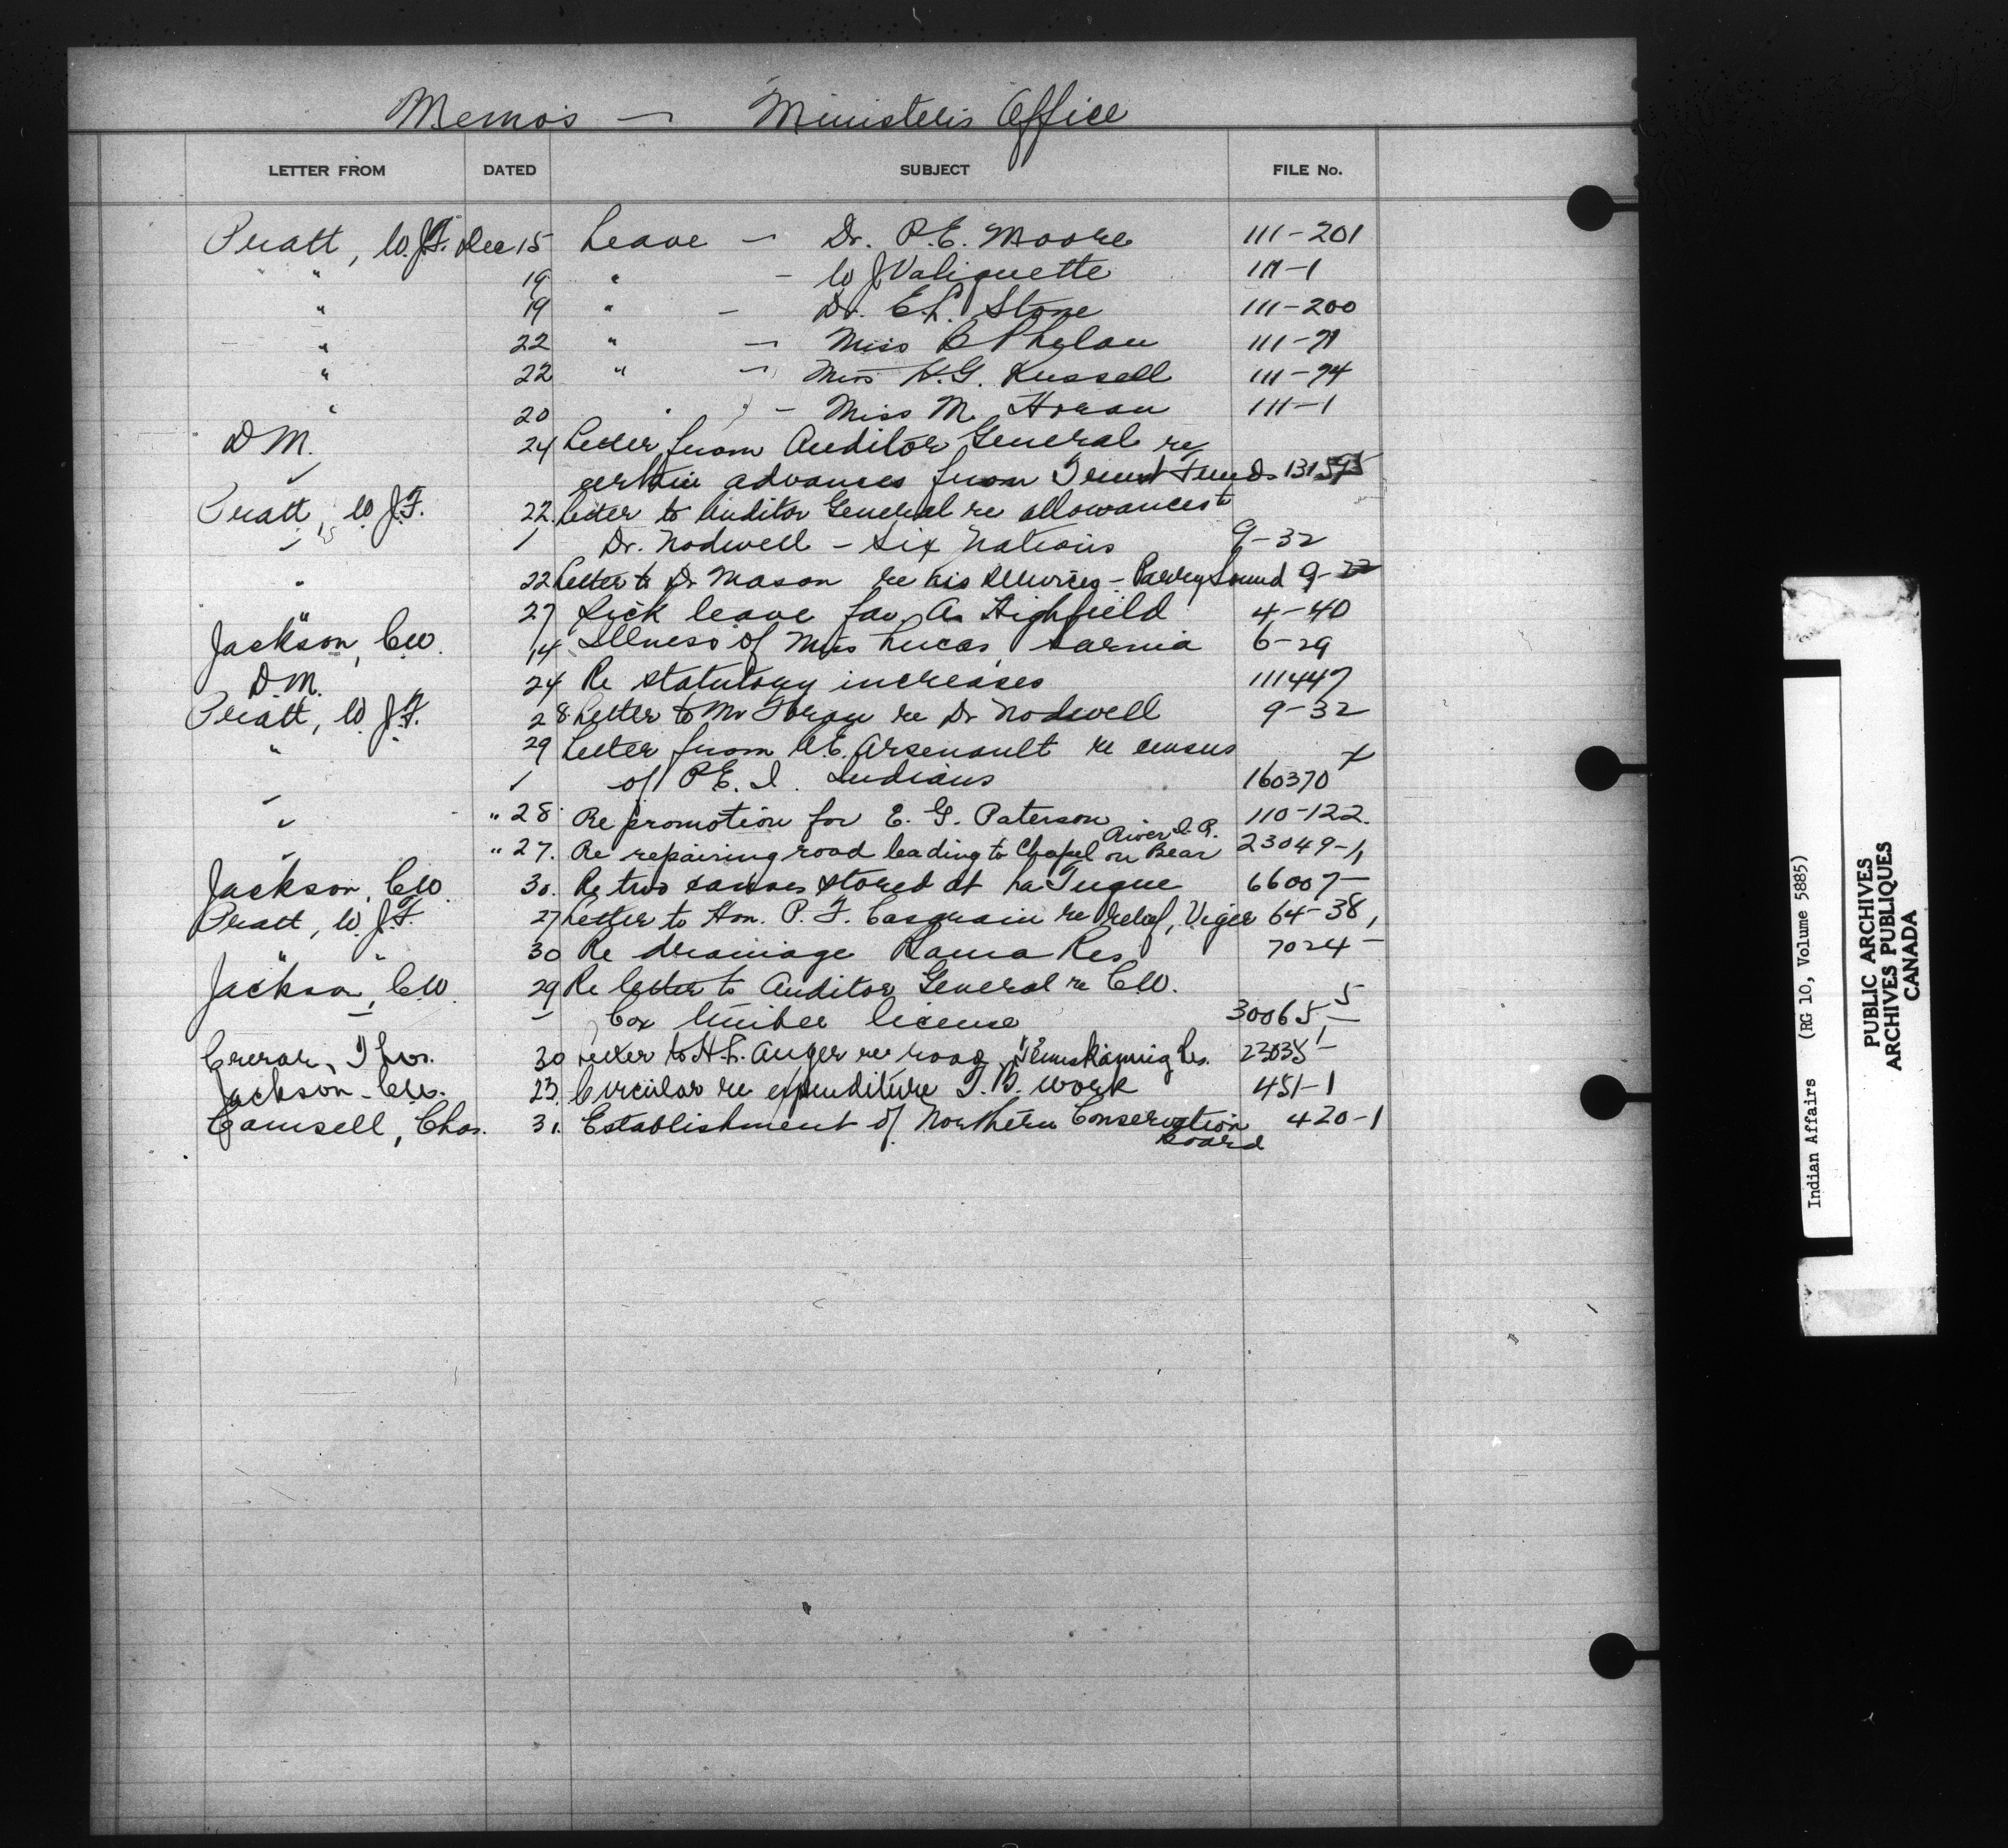 Memos — Minister's Office
LETTER FROM DATED SUBJECT FILE No.
Pratt, W.J.F. Dec 15 Leave — Dr. P.E. Moore 111-201
" 19 " — W J Valiquette 111-1
" 19 " — Dr. E.L. Stone 111-200
" 22 " — Miss B Phelan 111-71
" 22 " — Miss K.G. Russell 111-74
" 20 " — Miss M. Horan 111-1
D M. 24 Letter from Auditor General re
certain advances from Trust Funds
Pratt, W.J.F. 22 Letter to Auditor General re allowances to
Dr. Nodwell — Six Nations 9-32
" 22 Letter to Dr Mason re his services — Parry Sound 9-22
" 27 Sick leave for A. Highfield 4-40
Jackson, C.W. 14 Illness of Miss Lucas, Sarnia 6-29
D.M. 24 Re statutory increases 111447
Pratt, W.J.F. 28 Letter to Mr Moran re Dr Nodwell 9-32
" 29 Letter from A.E. Arsenault re census
of P.E.I. Indians 160370
" 28 Re promotion for E. G. Paterson 110-122
" 27. Re repairing road leading to Chapel on Bear River I.R. 23049-1
Jackson, C.W. 30. Re two canoes stored at La Tuque 66007-
Pratt, W.J.F. 27 Letter to Hon. P. F. Casgrain re relief, Viger 64-38,
" 30 Re drainage Rama Res 7024-
Jackson, C.W. 29 Re letter to Auditor General re C.W.
Cox timber license 30065-5
Crerar, Thos. 30 Letter to H.L. Auger re road, Temiskaming Res. 23035-1
Jackson, C.W. 23. Circular re expenditure T.B. work 451-1
Camsell, Chas. 31. Establishment of Northern Conservation Board 420-1
Indian Affairs (RG 10, Volume 5885)
PUBLIC ARCHIVES
ARCHIVES PUBLIQUES
CANADA